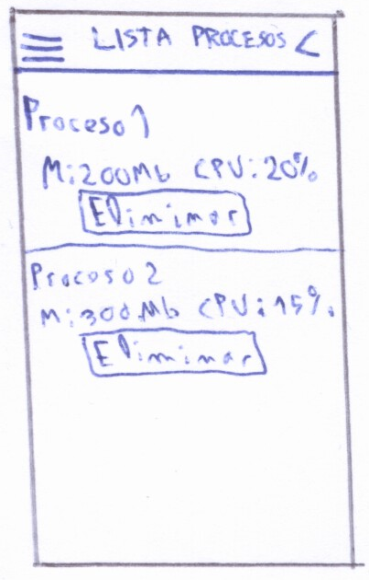 LISTA PROCESOS <
Proceso 1
M:200Mb CPU:20%
Eliminar
Proceso 2
M:300Mb CPU:15%
Eliminar